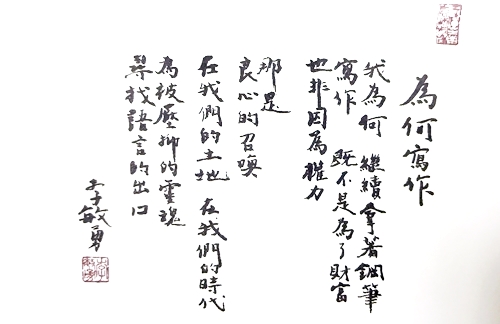 為何寫作
我為何 繼續拿著鋼筆
寫作 既不是為了財富
也非因為權力
那是
良心的召喚
在我們的土地 在我們的時代
為被壓抑的靈魂
尋找語言的出口
李敏勇